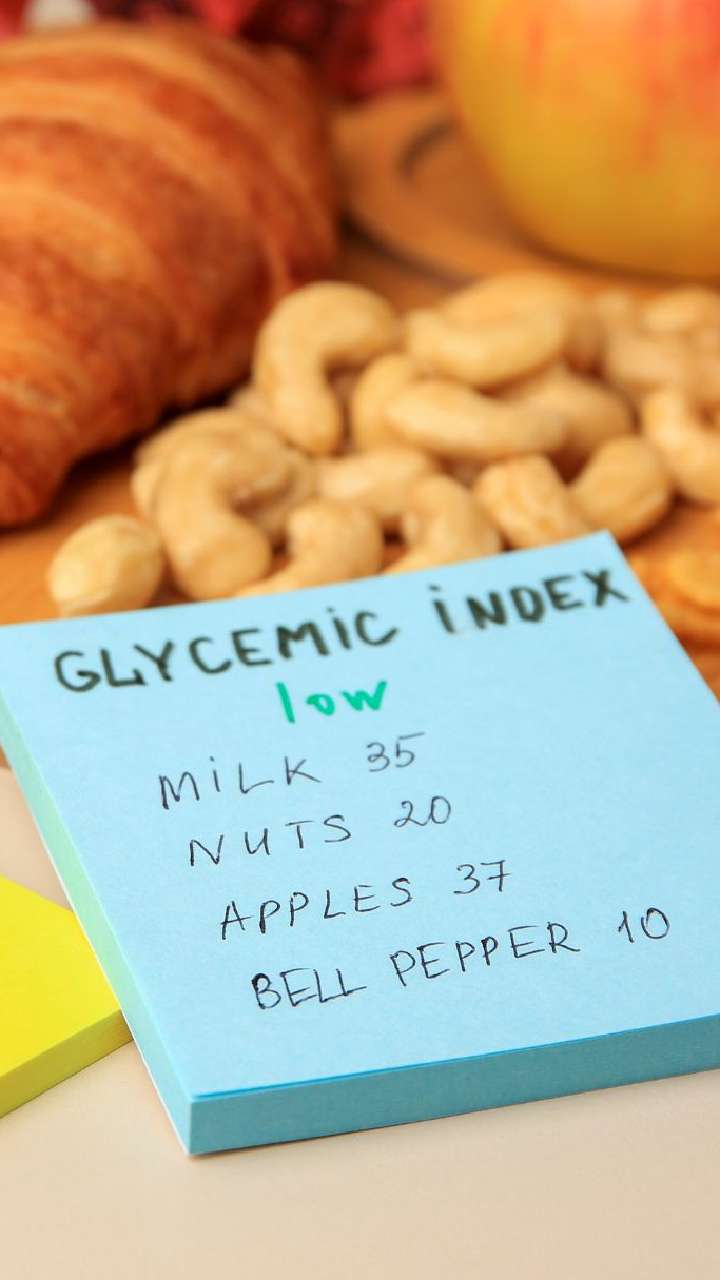 GLYCEMiC iNDEX
low
MiLK 35
NUTS 20
APPLES 37
BELL PEPPER 10